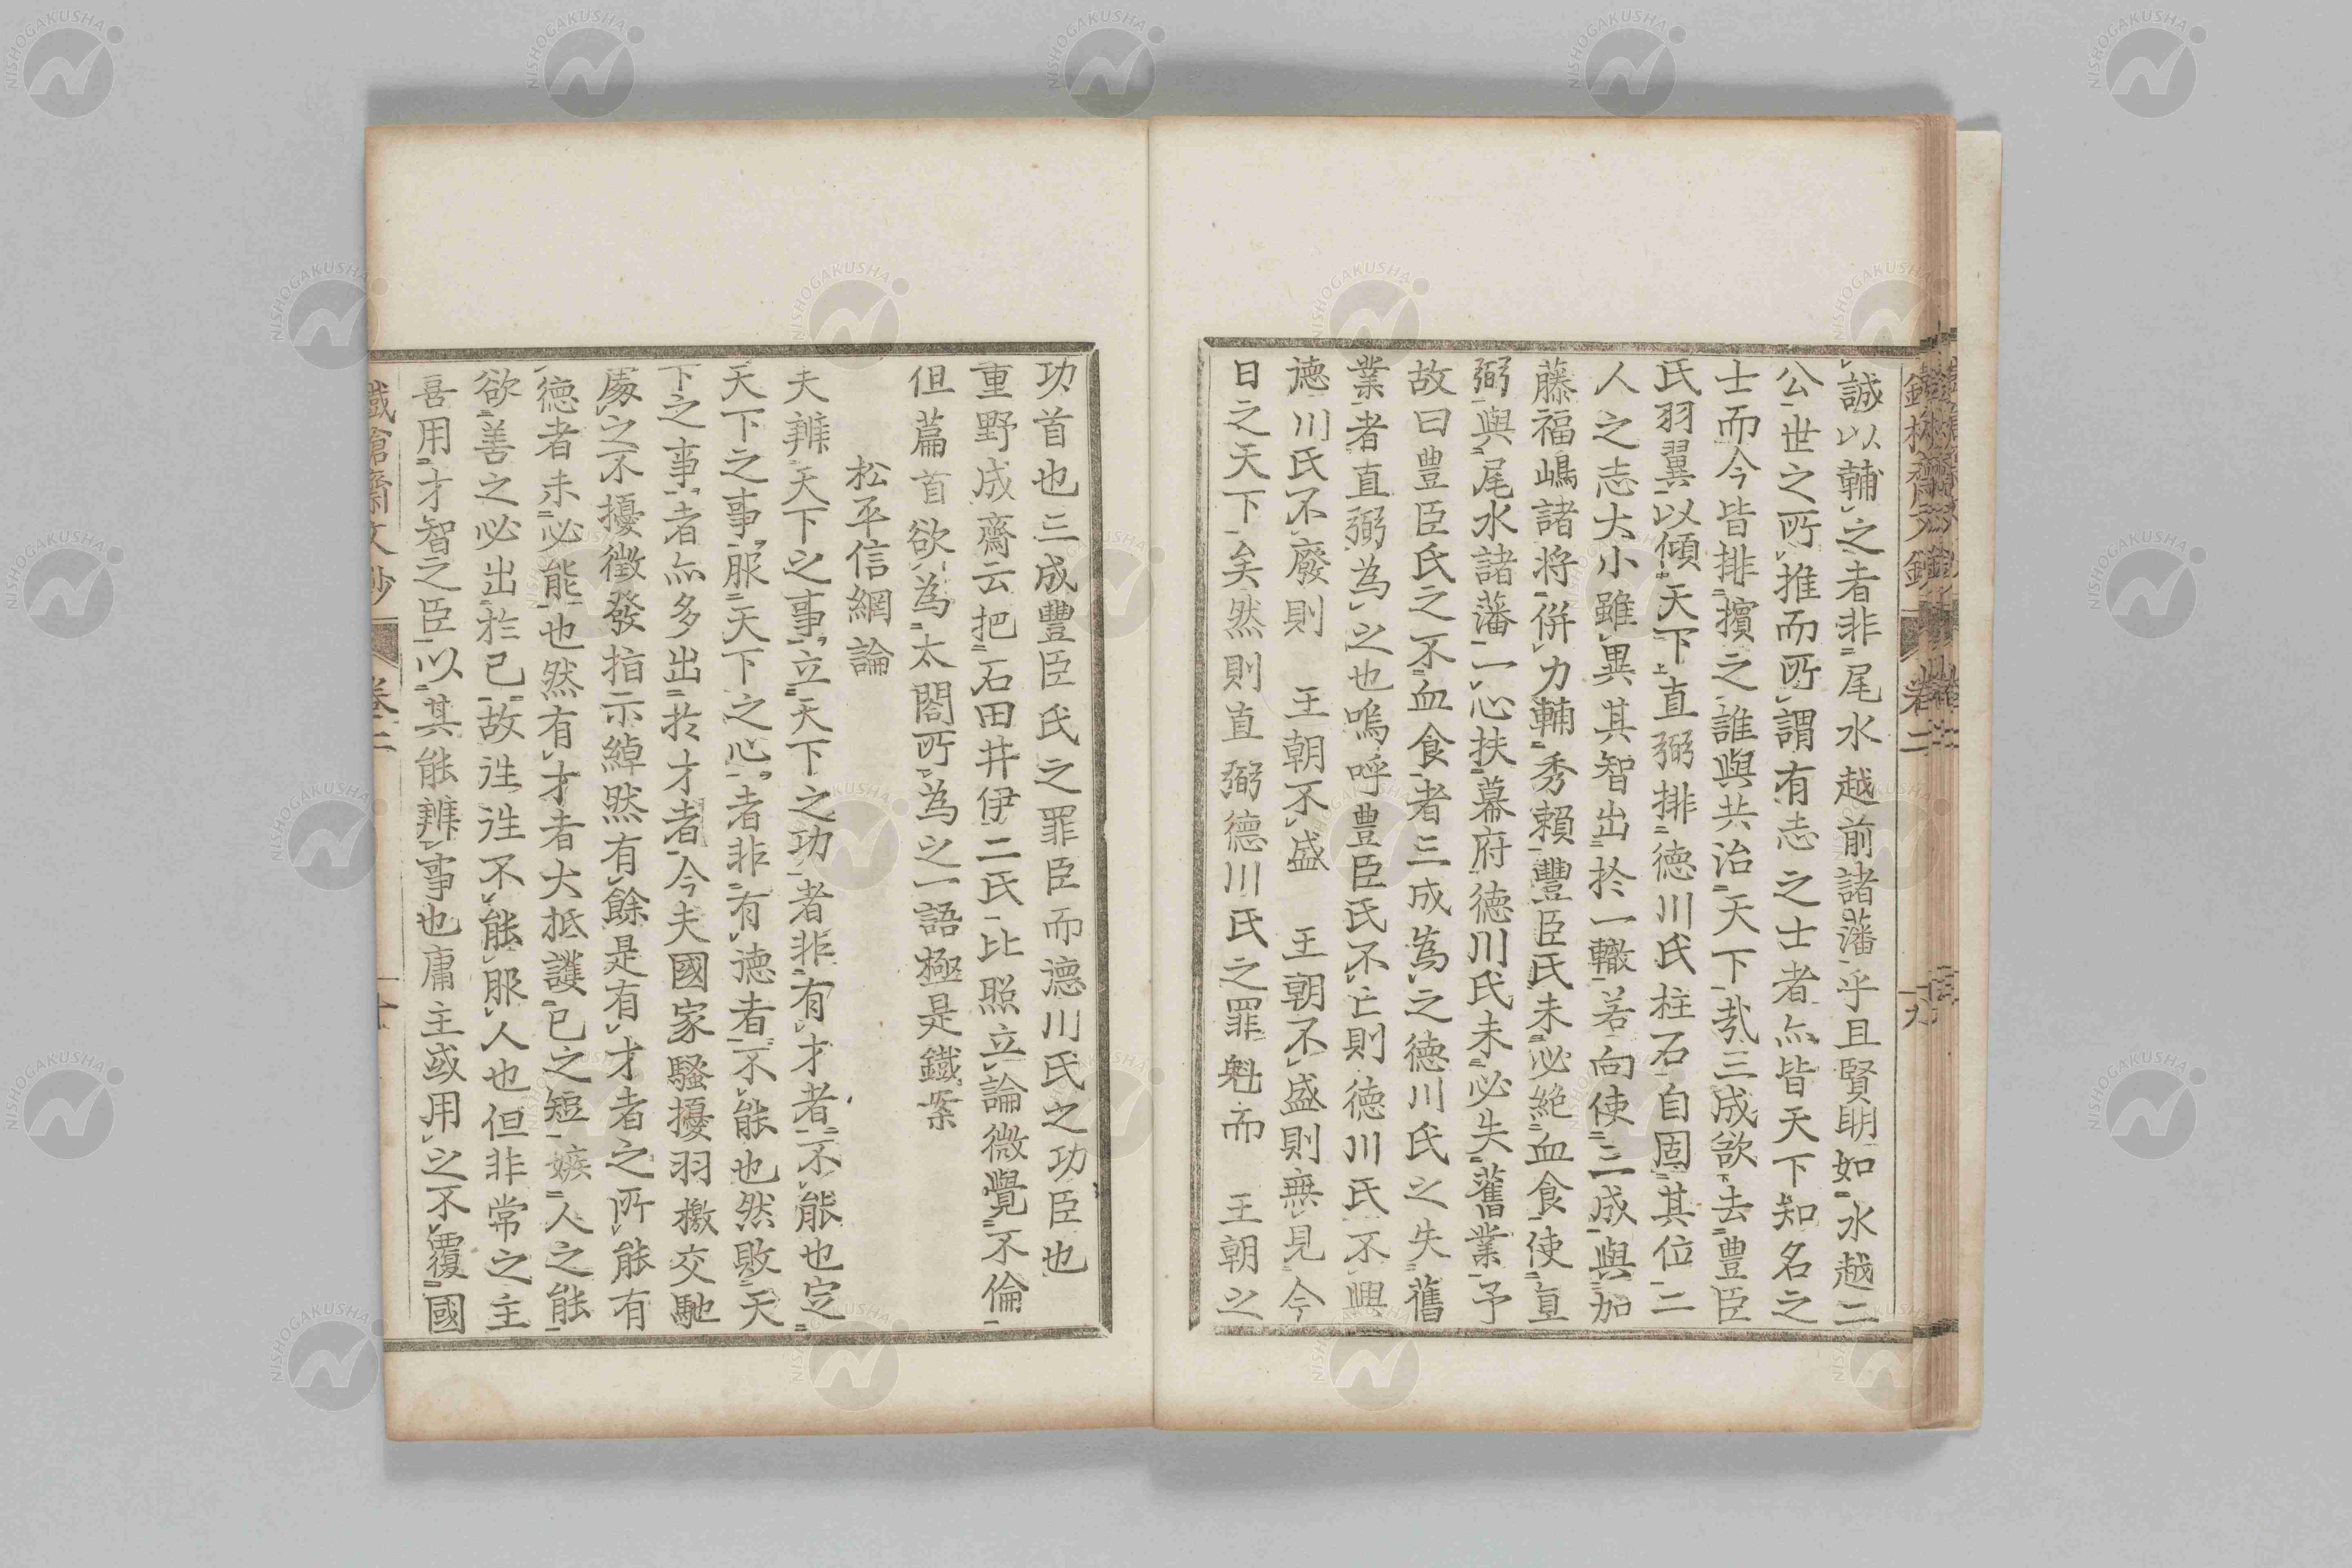 誠以輔之者非尾水越前諸藩乎且賢明如水越二
公世之所推而所謂有志之士者亦皆天下知名之
士而今皆排擯之誰與共治天下哉三成欲去豊臣
氏羽翼以傾天下直弼排徳川氏柱石自固其位二
人之志大小雖異其智出於一轍若向使三成與加
藤福嶋諸将併力輔秀頼豊臣氏未必絶血食使直
弼與尾水諸藩一心扶幕府徳川氏未必失舊業予
故曰豊臣氏之不血食者三成為之徳川氏之失舊
業者直弼為之也嗚呼豊臣氏不亡則徳川氏不興
徳川氏不廢則 王朝不盛 王朝不盛則無見今
日之天下矣然則直弼徳川氏之罪魁而 王朝之
功首也三成豊臣氏之罪臣而徳川氏之功臣也
重野成齋云把石田井伊二氏比照立論微覺不倫
但篇首欲為太閤所為之一語極是鐵案
松平信綱論
夫辨天下之事立天下之功者非有才者不能也定
天下之事服天下之心者非有徳者不能也然敗天
下之事者亦多出於才者今夫國家騷擾羽檄交馳
處之不擾徴發指示綽然有餘是有才者之所能有
徳者未必能也然有才者大抵護已之短嫉人之能
欲善之必出於已故往往不能服人也但非常之主
喜用才智之臣以其能辨事也庸主或用之不覆國
鐵槍齋文鈔 卷二 十